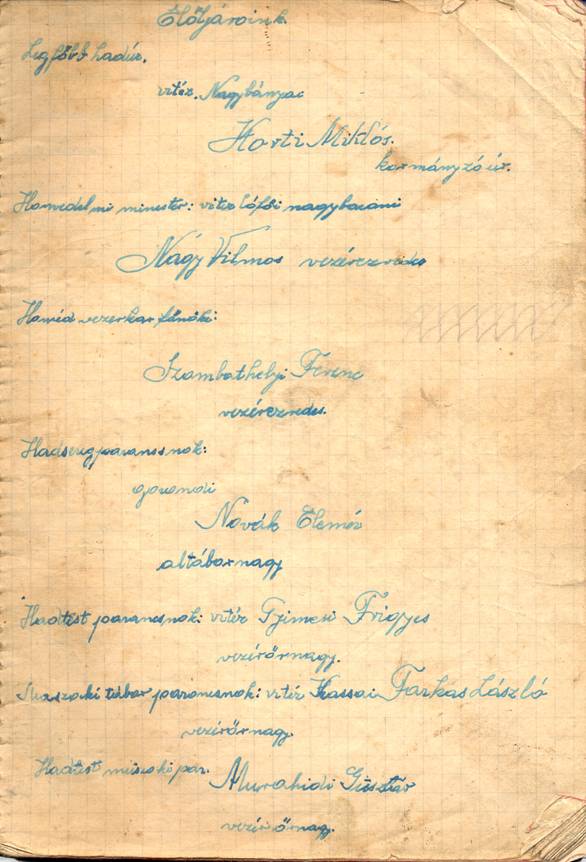 Elöljáróink
Legföbb hadúr.
vitéz. Nagybányai
Horti Miklós.
kormányzó úr.
Honvédelmi minester: vitéz lófői nagybaconi
Nágy Vilmos vezérezredes
Honvéd vezerkar fönöki:
Szombathelyi Ferenc
vezérezredes.
Hadseregparanssnok:
gorondi
Novák Elemér
altábornagy
Hadtest parancsnok: vitéz Gyimesi Frigyes
vezérőrnagy.
tábor parancsnok: vitéz Kassai Farkas László
vezérőrnagy.
Hadtest müszaki par.
Murahidi Gusztáv
vezér őrnagy.